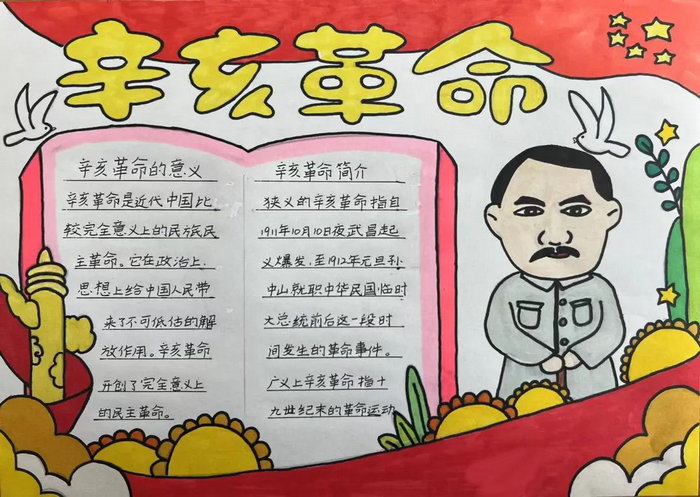 辛亥革命
辛亥革命的意义
辛亥革命是近代中国比
较完全意义上的民族民
主革命。它在政治上.
思想上给中国人民带
来了不可低估的解
放作用。辛亥革命
开创了完全意义上
的民主革命。
辛亥革命简介
狭义的辛亥革命指自
1911年10月10日夜武昌起
义爆发,至1912年元旦孙
中山就职中华民国临时
大总统前后这一段时
间发生的革命事件。
广义上辛亥革命指十
九世纪末的革命运动